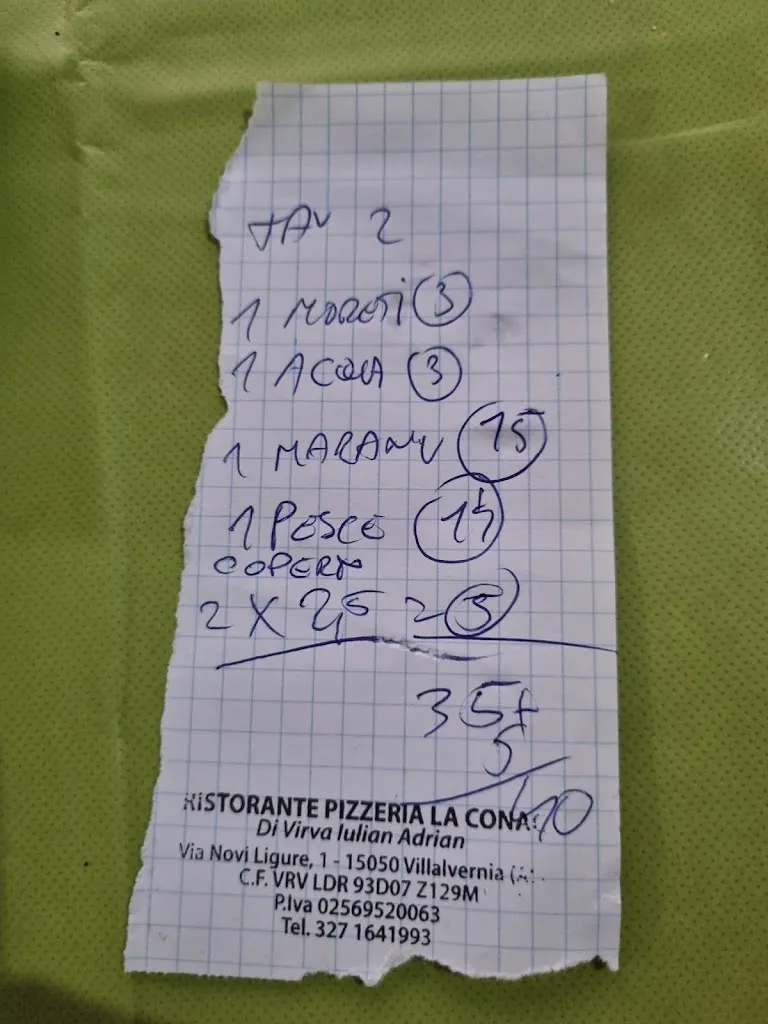 TAV 2
1 MORETI 3
1 ACQUA 3
1 15
1 PESCE 14
COPERTI
2 X 2,5 = 5
35+
5
40
RISTORANTE PIZZERIA LA
Di Virva Iulian Adrian
Via Novi Ligure, 1 - 15050 Villalvernia
C.F. VRV LDR 93D07 Z129M
P.Iva 02569520063
Tel. 327 1641993